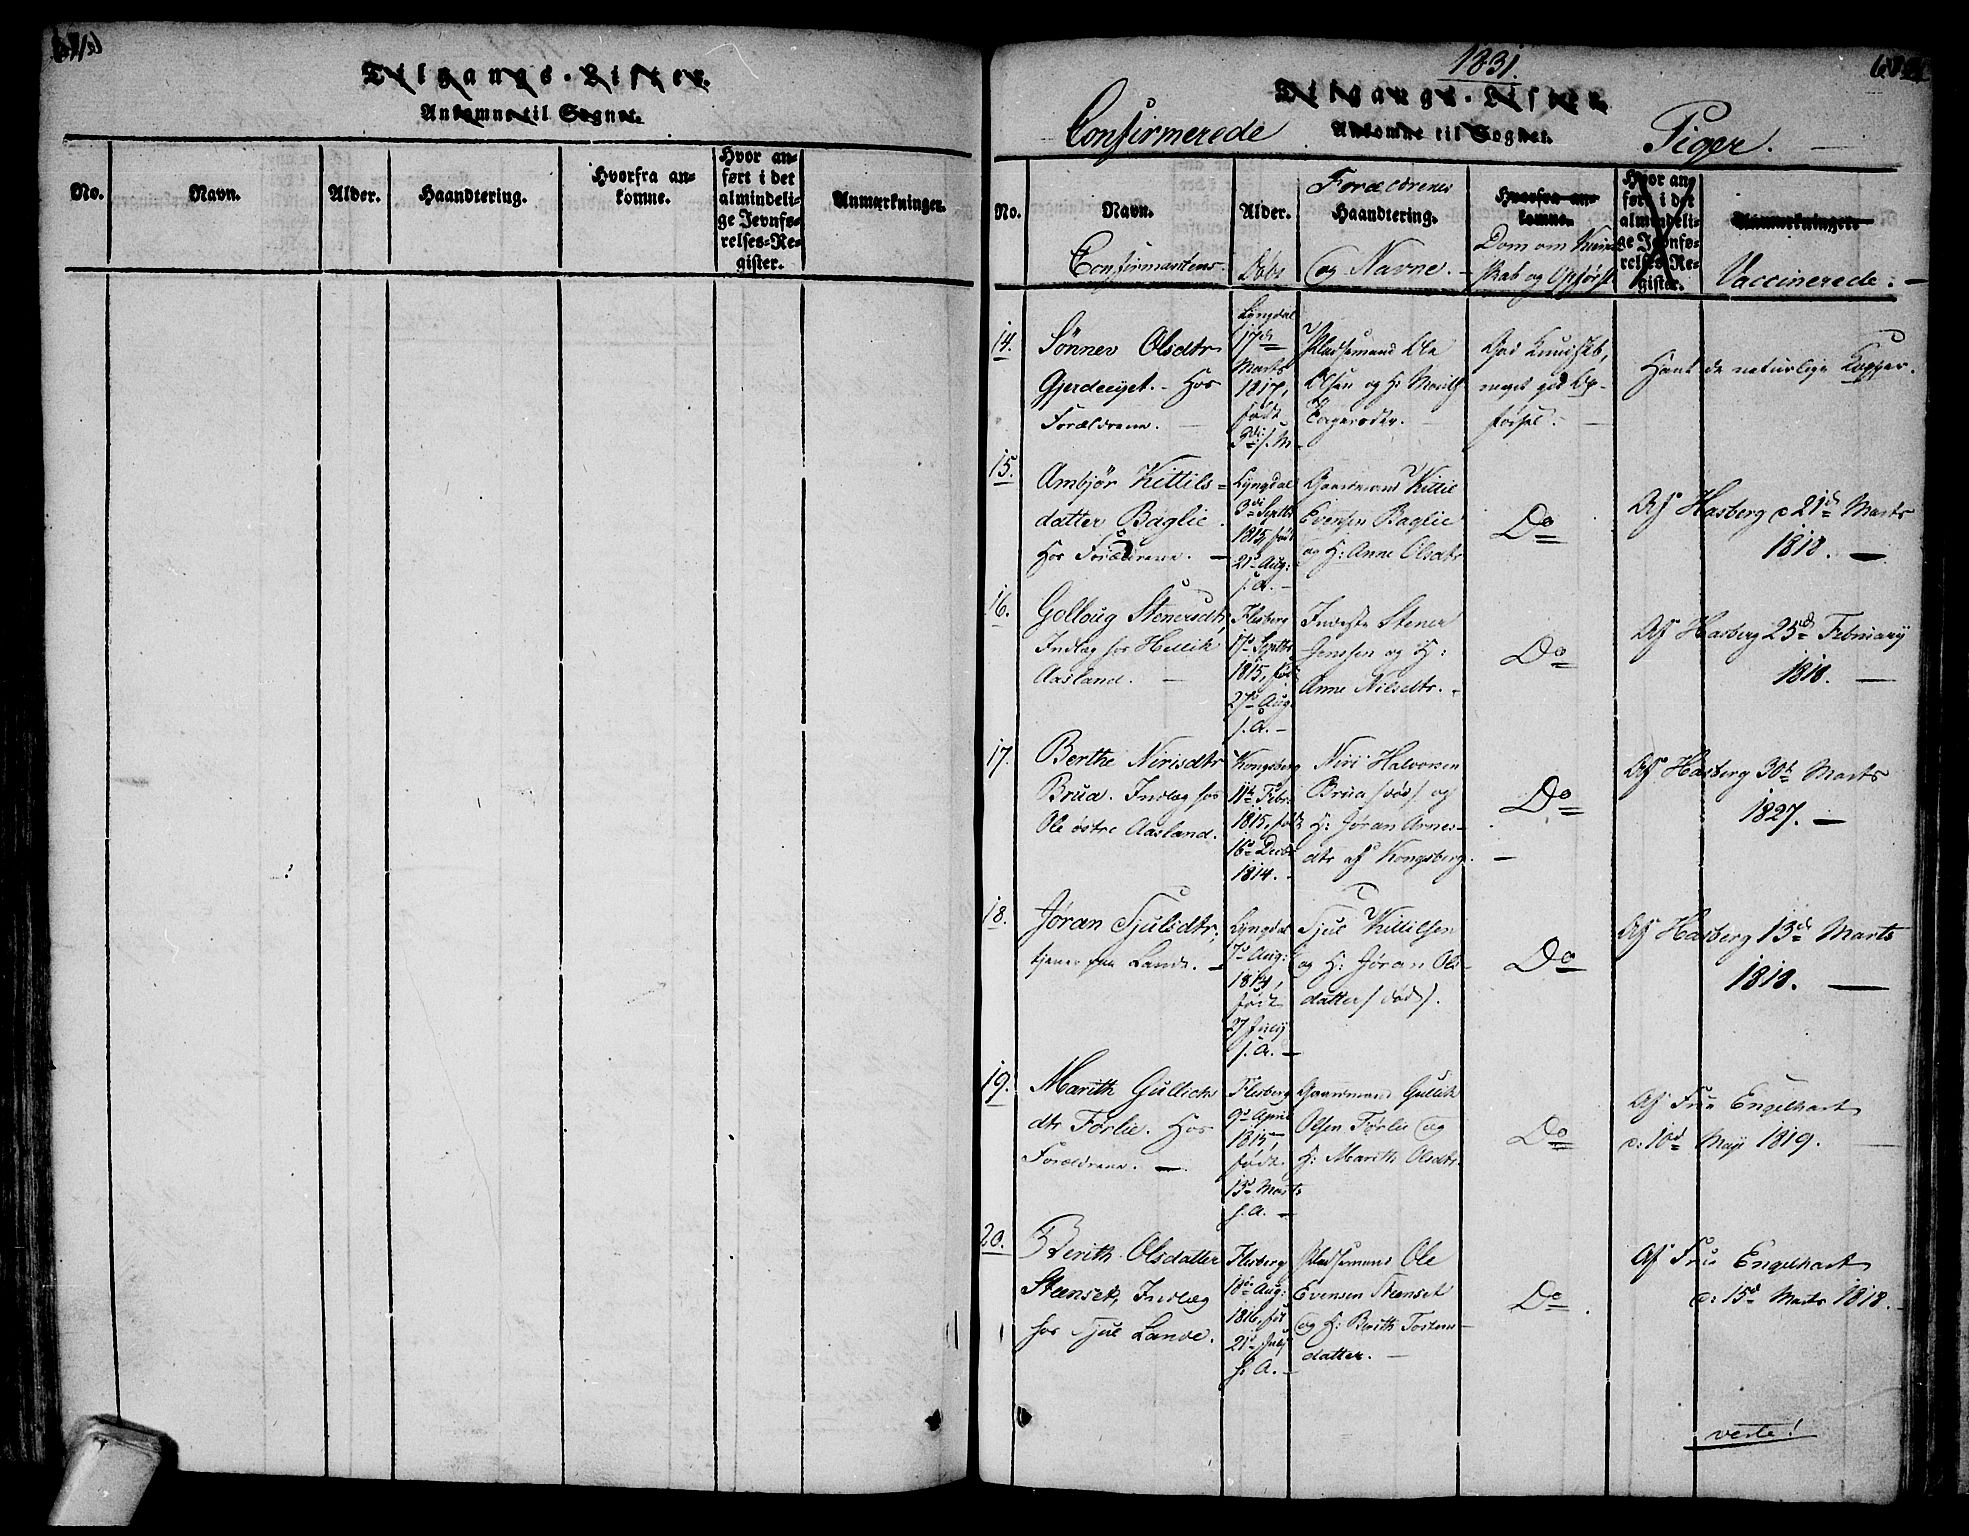 Tilgangs-Lister.
Ankomne til Sognet.
No.
Navn.
Alder.
Haandtering.
Hvorfra an-
komne.
Hvor an-
ført i det
almindeli-
ge Jevnfø-
relses-Re-
gister.
Anmærkninger.
1831.
Tilgangs-Lister.
Confirmerede
Ankomne til Sognet.
Piger.
No.
Navn.
Confirmantens
Alder.
Døbt
Forældrenes
Haandtering.
og Navne.
Hvorfra an-
komne.
Dom om Kund-
skab og Opførsel
Hvor an-
ført i det
almindeli-
ge Jevnfø-
relses-Re-
gister.
Anmærkninger.
Vaccinerede.
14.
Sønnev Olsdtr
Gjerdeeyet. Hos
Forældrene.
Lyngdal
17de
Marts
1817,
født
3die s. M.
Pladsemand Ole
Olsen og H:
god Kundskb,
meget god Op-
førsel.
Havt de naturlige Kopper.
15.
Ambjør Kittils-
datter Baglie
Hos Forældrene.
Lyngdal
3die Septbr
1815, født
21de Aug:
s. A.
Gaardmand Kittil
Evensen Baglie
og H: Anne Olsdtr
Do
Af Hasberg d 21de Marts
1818.
16.
Golloug Stenersdtr,
Indlæg hos Hellik
Aasland.
Flesberg
17de Septbr
1815, født
27de Aug.
s. A.
Inderste Stener
Jensen og H:
Anne Nilsdtr.
Do
Af Hasberg 25de February
1818.
17.
Berthe Nirisdtr
Brua. Indlæg hos
Ole østre Aasland.
Kongsberg
11te Febr.
1815, født
16de Decbr
1814.
Niri Halvorsen
Brua (død) og
H: Jøran Arnes-
dtr af Kongsberg.
Do
Af Hasberg 30te Marts
1827.
18.
Jøran Tjulsdtr,
tjener paa Lande.
Lyngdal
7de Aug:
1814,
født
27 July
s. A.
Tjul Kittilsen
og H: Jøran Ols-
datter (død).
Do
Af Hasberg 13de Marts
1818.
19.
Marith Gullichs
dtr Førlie. Hos
Forældrene.
Flesberg
9de April
1815,
født
15de Marts
s. A.
Gaardmand Gullik
Olsen Førlie og
H: Marith Olsdtr.
Do
Af Frue Engelhart
d: 10de May 1819.
20.
Berith Olsdatter
Steenset, Indlæg
hos Tjul Lande.
Flesberg
18de Aug:
1816, født
21de July
s. A.
Pladsemand Ole
Evensen Steenset
og H: Berith Torstens-
datter.
Do
Af Frue Engelhart
d: 15de Marts 1818.
verte!